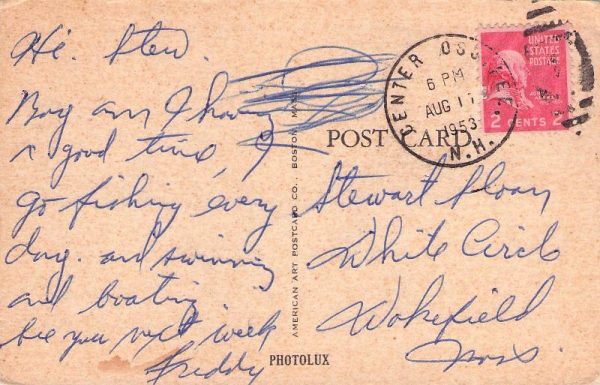 Hi. Stew.
Boy am I having
a good time,
go fishing every
day. and swimming
and boating.
See you next week
Freddy
AMERICAN ART POSTCARD CO., BOSTON, MASS.
POST CARD
CENTER OSSIPEE,
6 PM
AUG 17
1953
N.H.
UNITED
STATES
POSTAGE
2 CENTS 2
Stewart Sloan
White Circle
Wakefield
Mass.
PHOTOLUX